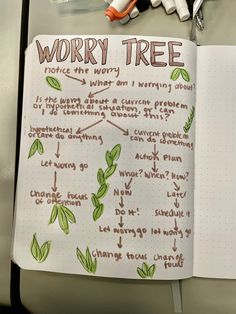 WORRY TREE
notice the worry
What am I worrying about?
Is the worry about a current problem
or hypothetical situation, or can
I do something about this?
hypothetical
or cant do anything
current problem
can do something
Let worry go
Action Plan
What? When? How?
Change focus
of attention
Now
Later
Do it!
Schedule it
Let worry go
let worry go
change focus
change
focus